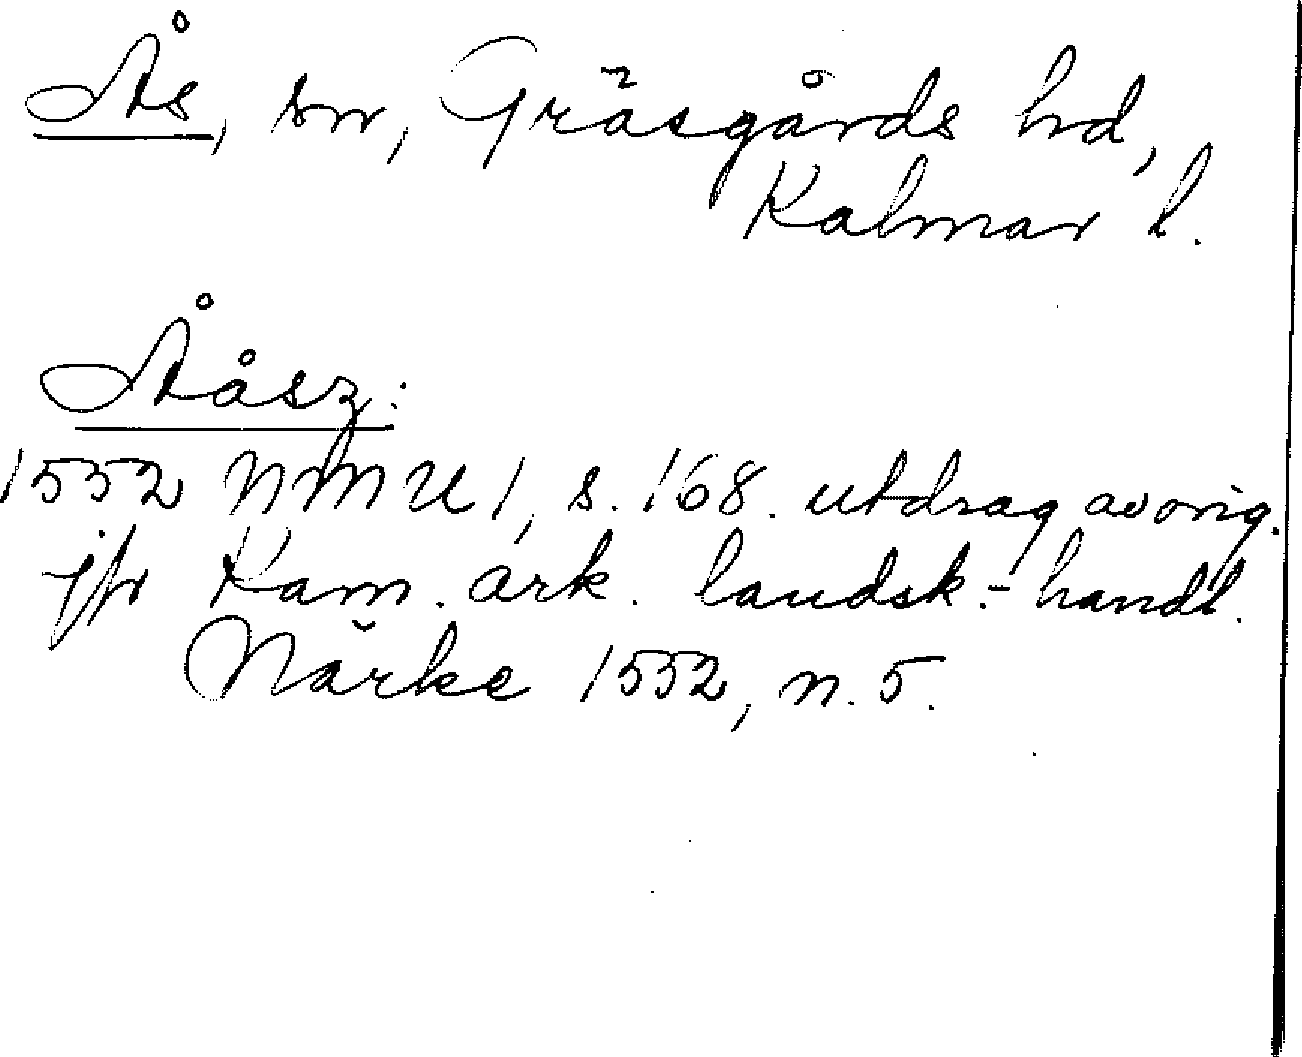 Ås, sn, Gräsgårds hd,
Kalmar l.
Ååsz:
1552 NMU 1, s. 168. utdrag av orig.
jfr Kam. ark. landsk.-handl.
Närke 1552, n. 5.